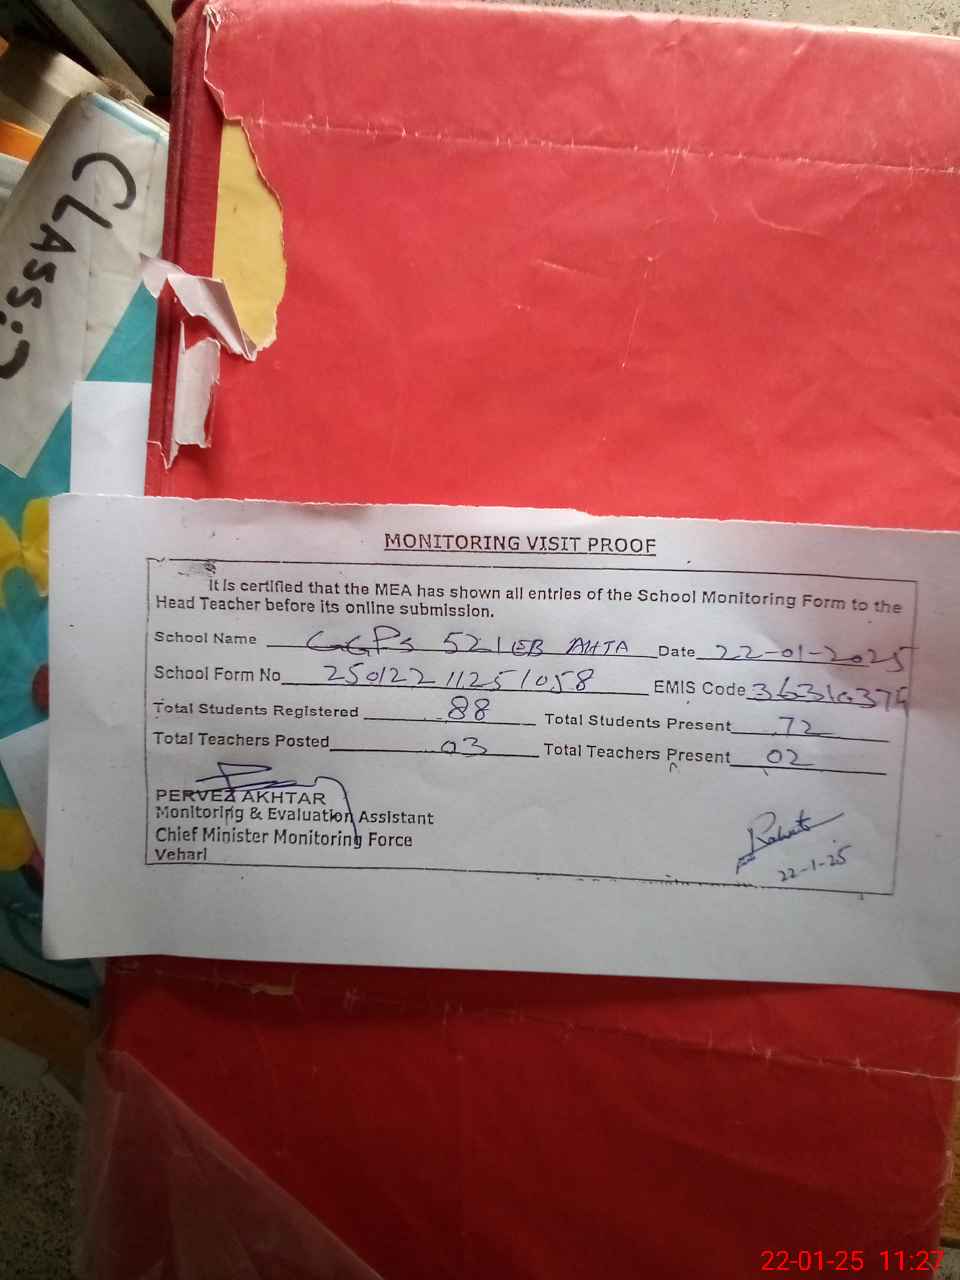 CLASS:
MONITORING VISIT PROOF
It is certified that the MEA has shown all entries of the School Monitoring Form to the
Head Teacher before its online submission.
School Name GGPS 521 EB AHTA Date 22-01-2025
School Form No 25012211251058 EMIS Code
Total Students Registered 88 Total Students Present 72
Total Teachers Posted 03 Total Teachers Present 02
PERVEZ AKHTAR
Monitoring & Evaluation Assistant
Chief Minister Monitoring Force
Vehari
22-1-25
22-01-25 11:27